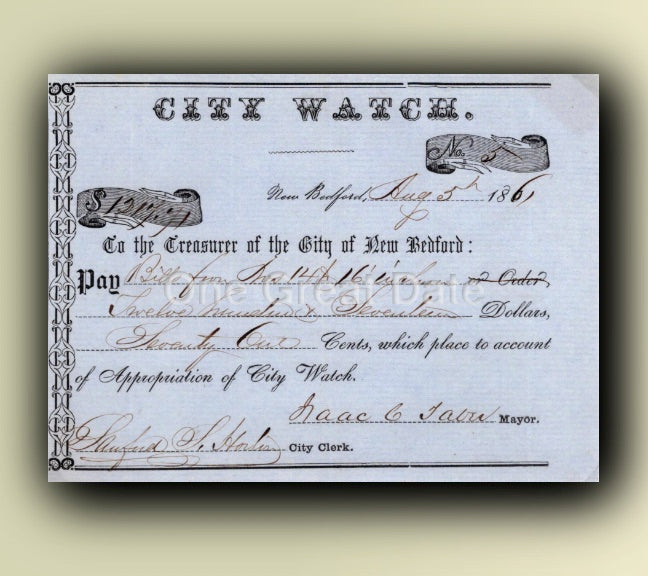 CITY WATCH.
No. 5
New Bedford, Aug 5th 1861
$ 1217.71
To the Treasurer of the City of New Bedford:
Pay Bills from No. 124 to 161 inclusive or Order,
Twelve hundred & Seventeen Dollars,
Seventy One Cents, which place to account
of Appropriation of City Watch.
Isaac C Taber Mayor.
Sanford S. Horton City Clerk.
One Great Date